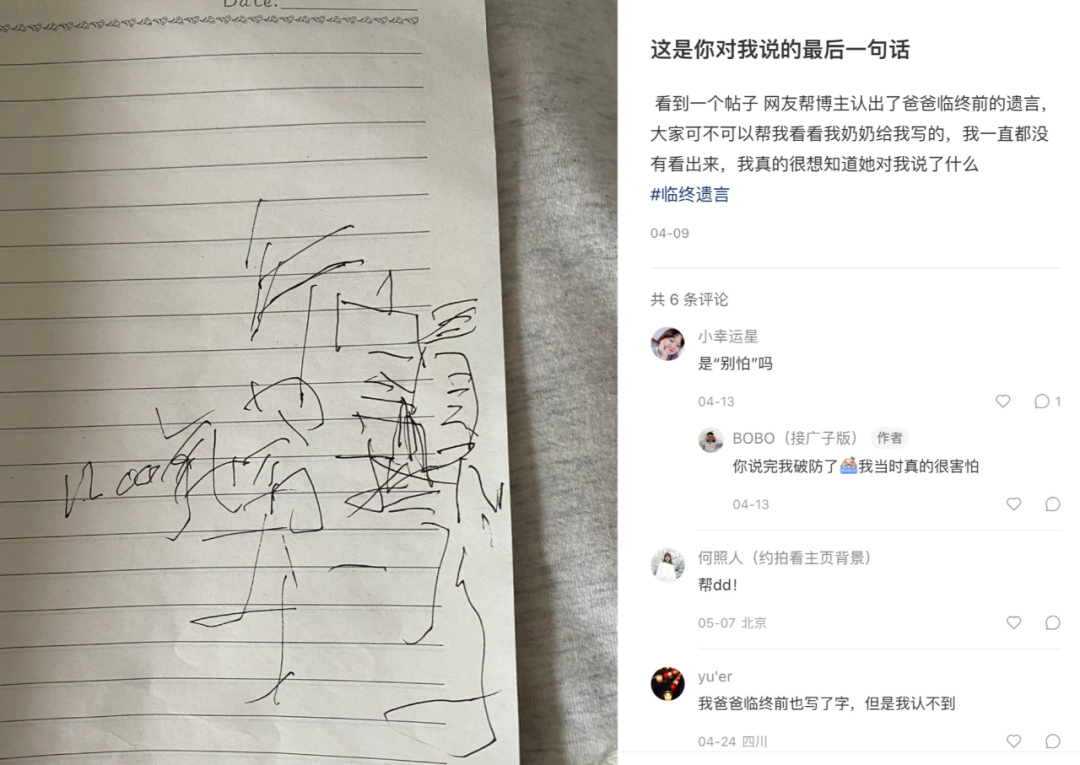 Date:
这是你对我说的最后一句话
看到一个帖子 网友帮博主认出了爸爸临终前的遗言，
大家可不可以帮我看看我奶奶给我写的，我一直都没
有看出来，我真的很想知道她对我说了什么
#临终遗言
04-09
共 6 条评论
小幸运星
是“别怕”吗
04-13
1
BOBO（接广子版） 作者
你说完我破防了我当时真的很害怕
04-13
何照人（约拍看主页背景）
帮dd！
05-07 北京
yu'er
我爸爸临终前也写了字，但是我认不到
04-24 四川